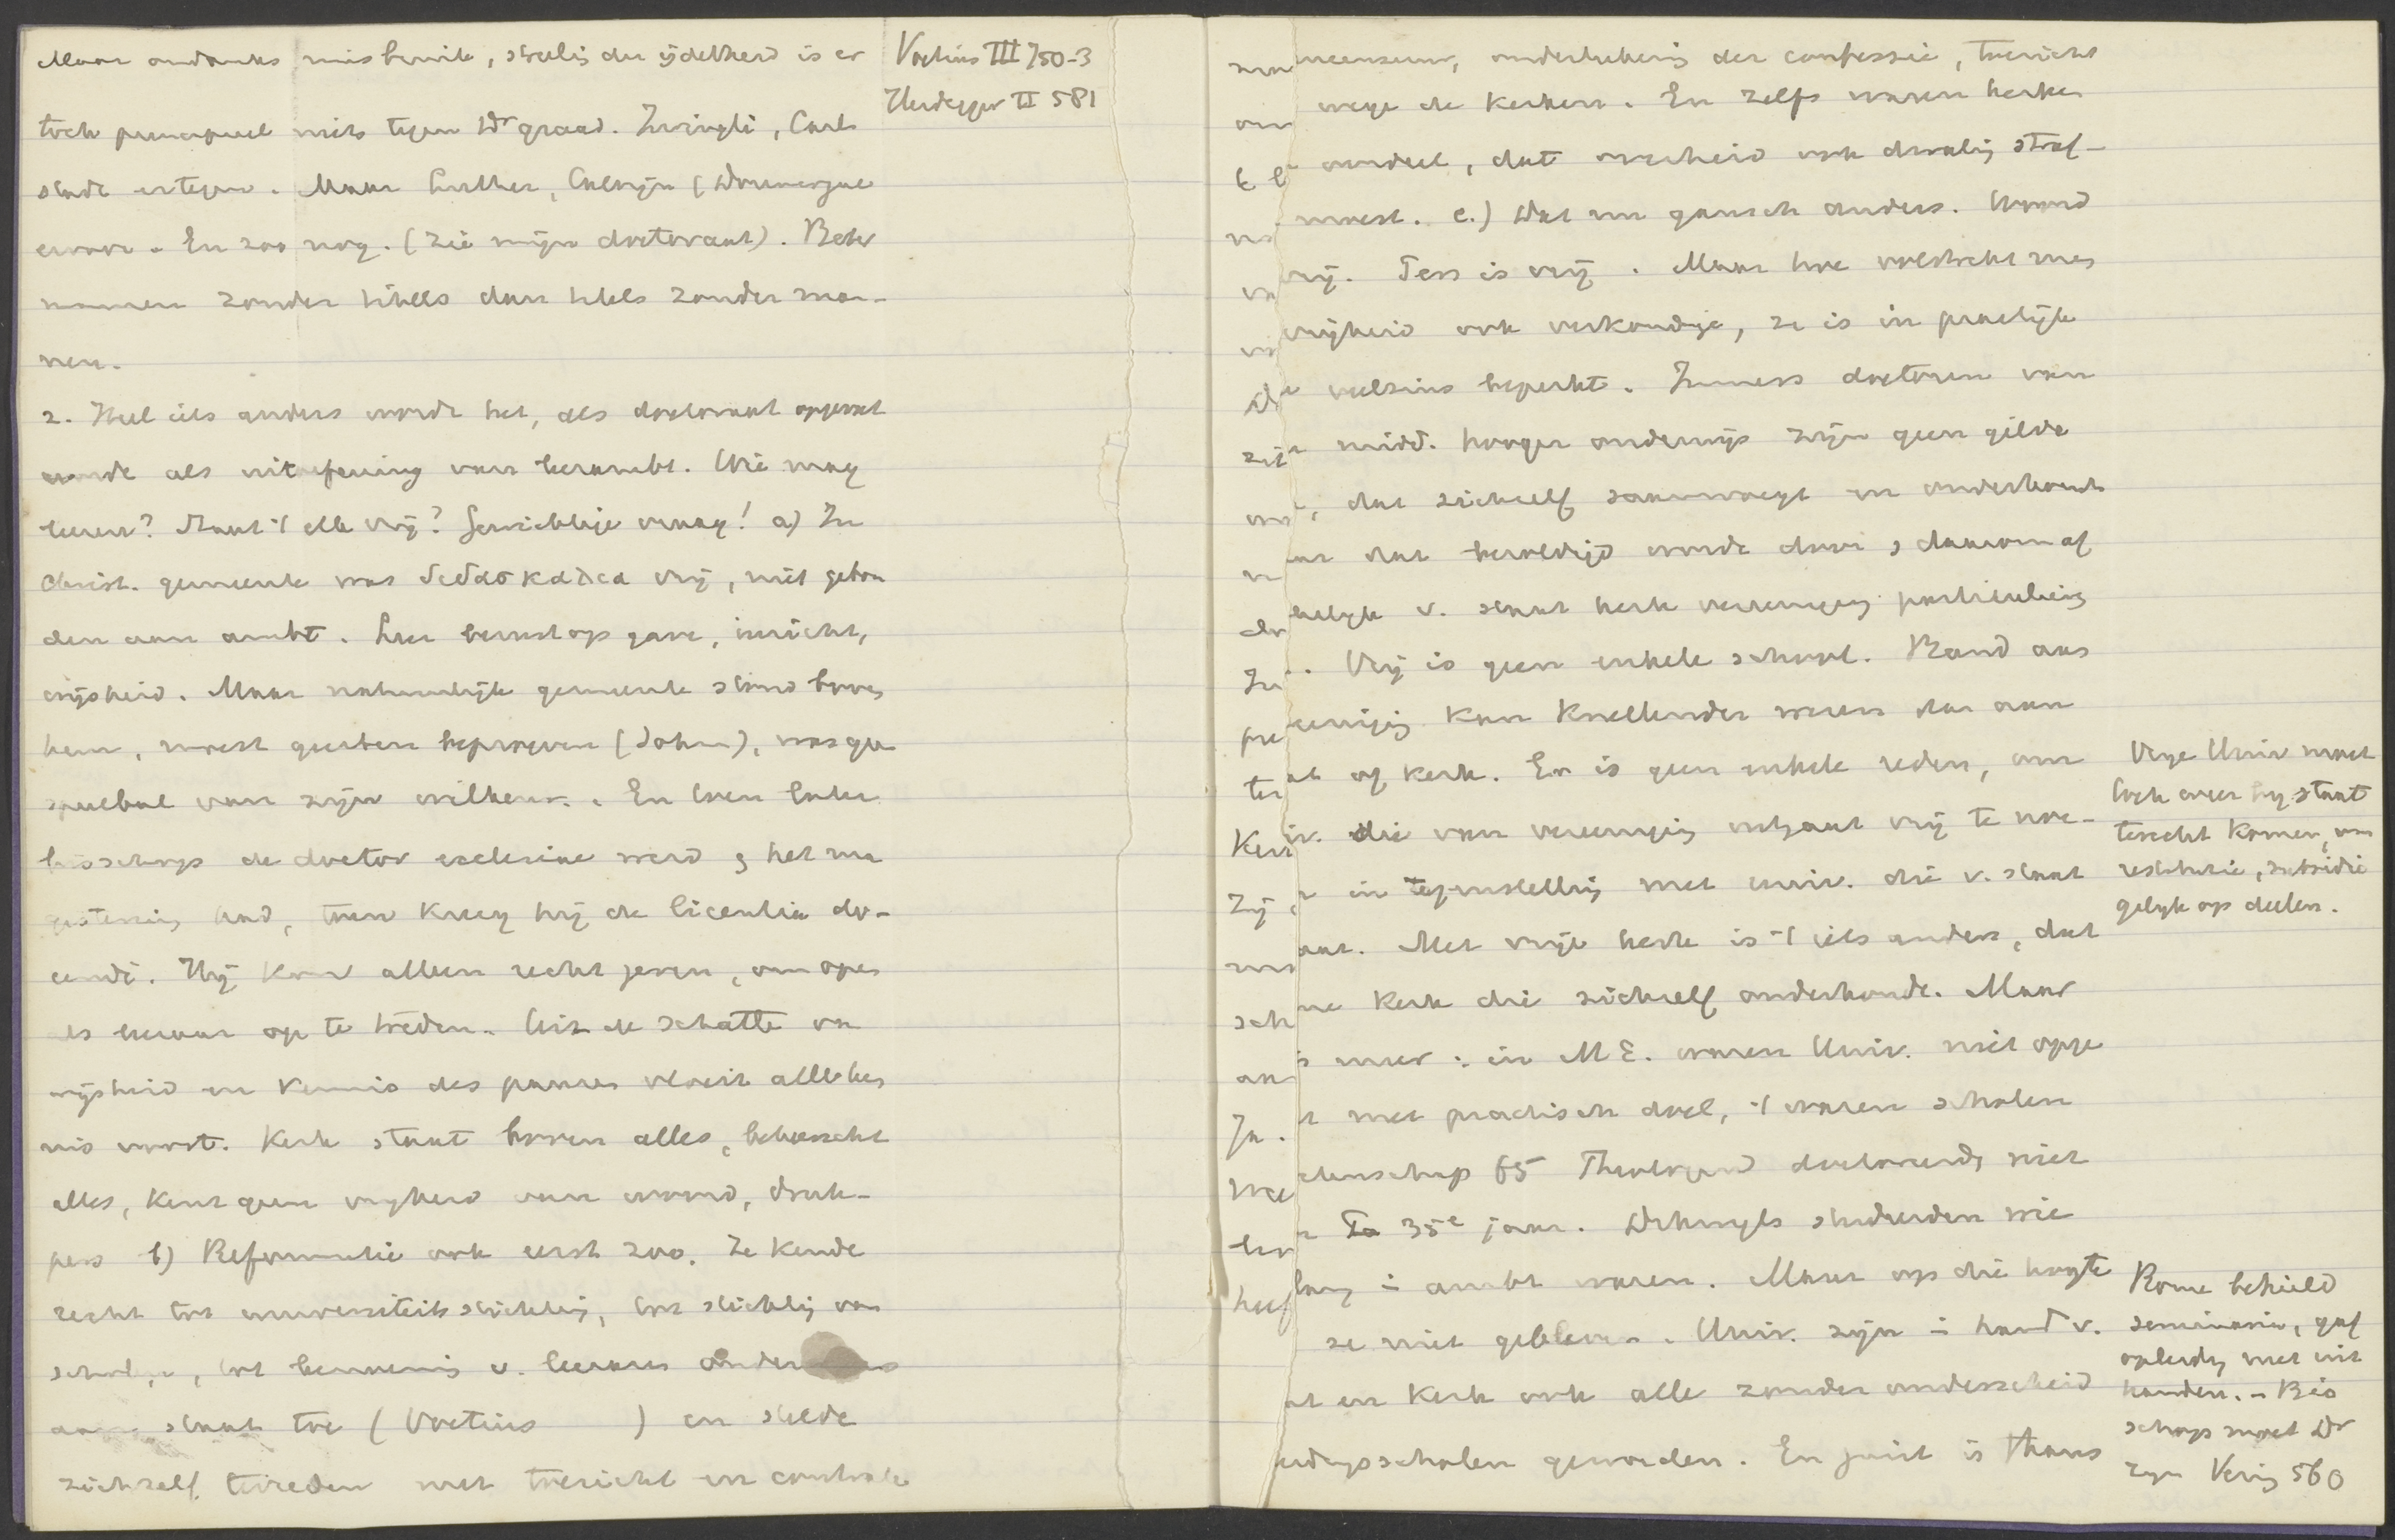 Maar ondanks misbruik, streelig der ijdelheid is er
toch principieel niets tegen Dr graad. Zwingli, Carl
stadt ertegen. Maar Luther, Calvijn (Doumergue
ervoor. En zoo nog. (Zie mijn doctoraat). Beter
mannen zonder titels dan titels zonder man-
nen.
2. Heel iets anders wordt het, als doctoraat opgevat
wordt als uitoefening van leerambt. Wie mag
leeren? Staat 't elk vrij? Gewichtige vraag! a) In
Christ. gemeente was διδασκαλια vrij, niet gebon
den aan ambt. Leer berust op gave, inzicht,
wijsheid. Maar natuurlijk gemeente stond boven
hem, moest geesten beproeven (Joh), was geen
speelbal van zijn willekeur. En toen later
bisschop de doctor ecclesiae werd en het ma
gisterium had, toen kreeg hij de licentia do-
cendi. Hij kon alleen recht geven, om open
als leeraar op te treden. Uit de schatte van
wijsheid en kennis des pausen vloeit alle ken
nis voort. Kerk staat boven alles, beheerscht
alles, kent geen vrijheid van woord, druk-
pers b) Reformatie ook eerst zoo. Ze kende
recht tot universiteitsstichting, tot stichting van
scholen, tot benoeming v. leeraars
aan staat toe (Voetius ) en stelde
zichzelf tevreden met toezicht en controle
Voetius III 750-3
Heidegger II 581
censuur, onderteekening der confessie, toezicht
wege de kerken. En zelfs waren kerken
oordeel, dat overheid ook dwaling straf-
moest. c.) Dat nu gansch anders. Woord
vrij. Pers is vrij. Maar hoe volstrekt men
vrijheid ook verkondige, ze is in practijk
veelzins beperkt. Immers doctoren van
midd. hooger onderwijs zijn geen gilde
, dat zichzelf saamvoegt en onderhoudt
hangelijk v. staat kerk vereeniging particulieren
. Vrij is geen enkele school. Band aan
vereeniging kan knellender wezen dan aan
staat of kerk. Er is geen enkele reden, om
univ. die van vereeniging uitgaat vrij te noe-
men in tegenstelling met univ. die v. staat
uitgaat. Met vrije kerk is 't iets anders, dat
eene kerk die zichzelf onderhoudt. Maar
is meer: in M E. waren Univ. niet opge
met practisch doel, 't waren scholen
wetenschap 65 Theologen doctoreerden niet
voor 35e jaar. Dikwijls studeerden wie
lang in ambt waren. Maar op die hoogte
ze niet gebleven. Univ. zijn in hand v.
staat en kerk ook alle zonder onderscheid
opleidingsscholen geworden. En juist is thans
Vrije Univ moet
toch weer bij staat
terecht komen, om
restitutie, subsidie
gelijk op deelen.
Rome behield
seminaria, gaf
opleiding niet uit
handen. - Bis
schop moet Dr
zijn Vering 560